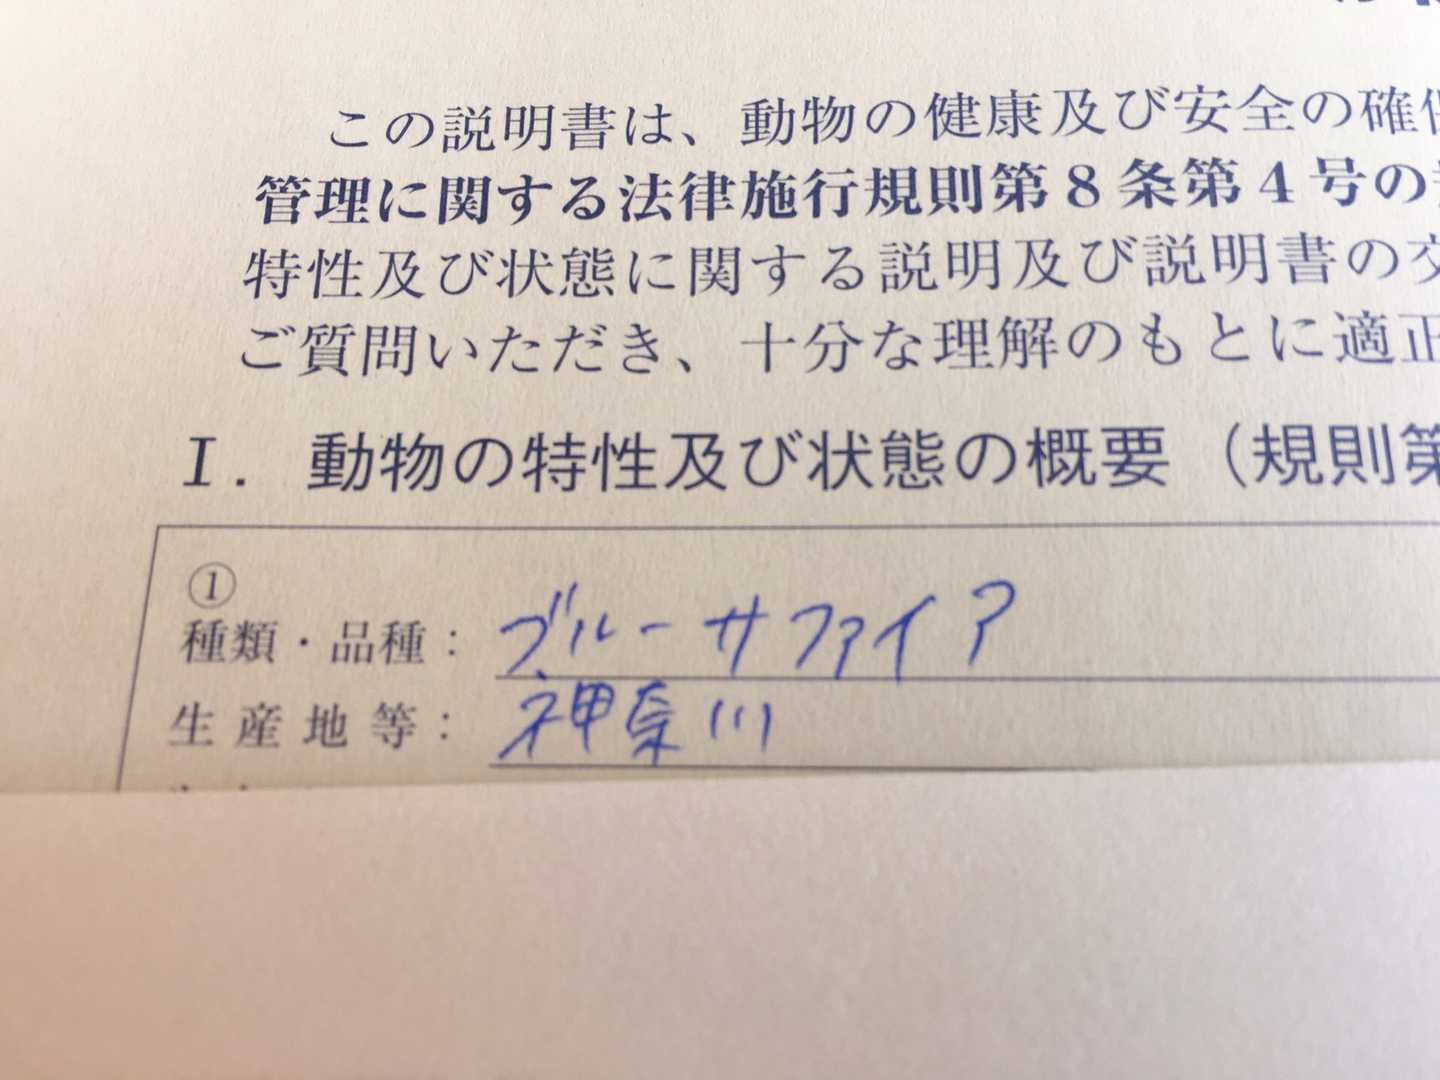 この説明書は、動物の健康及び安全の確保
管理に関する法律施行規則第8条第4号の
特性及び状態に関する説明及び説明書の交
ご質問いただき、十分な理解のもとに適正
I. 動物の特性及び状態の概要（規則第
①
種類・品種： ブルーサファイア
生産地等： 神奈川